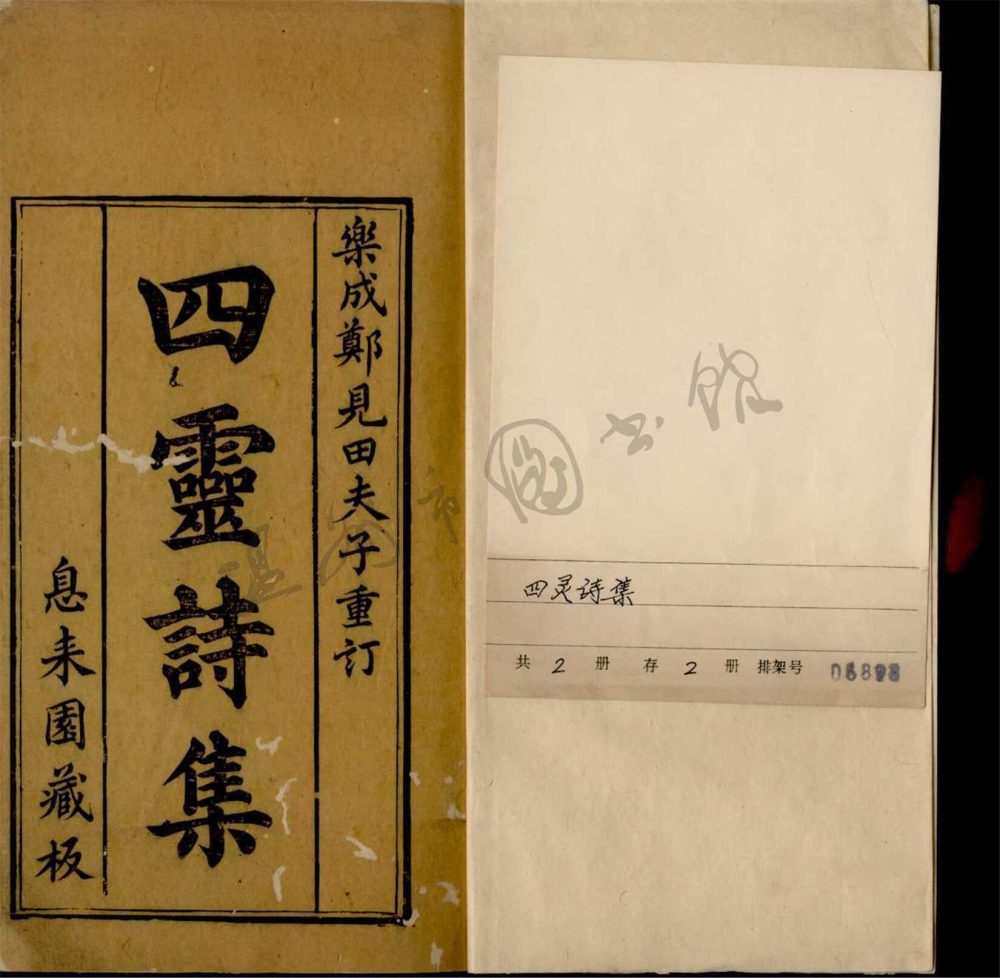 樂成鄭見田夫子重訂
四靈詩集
息耒園藏板
四灵诗集
共 2 册 存 2 册 排架号
温州市图书馆